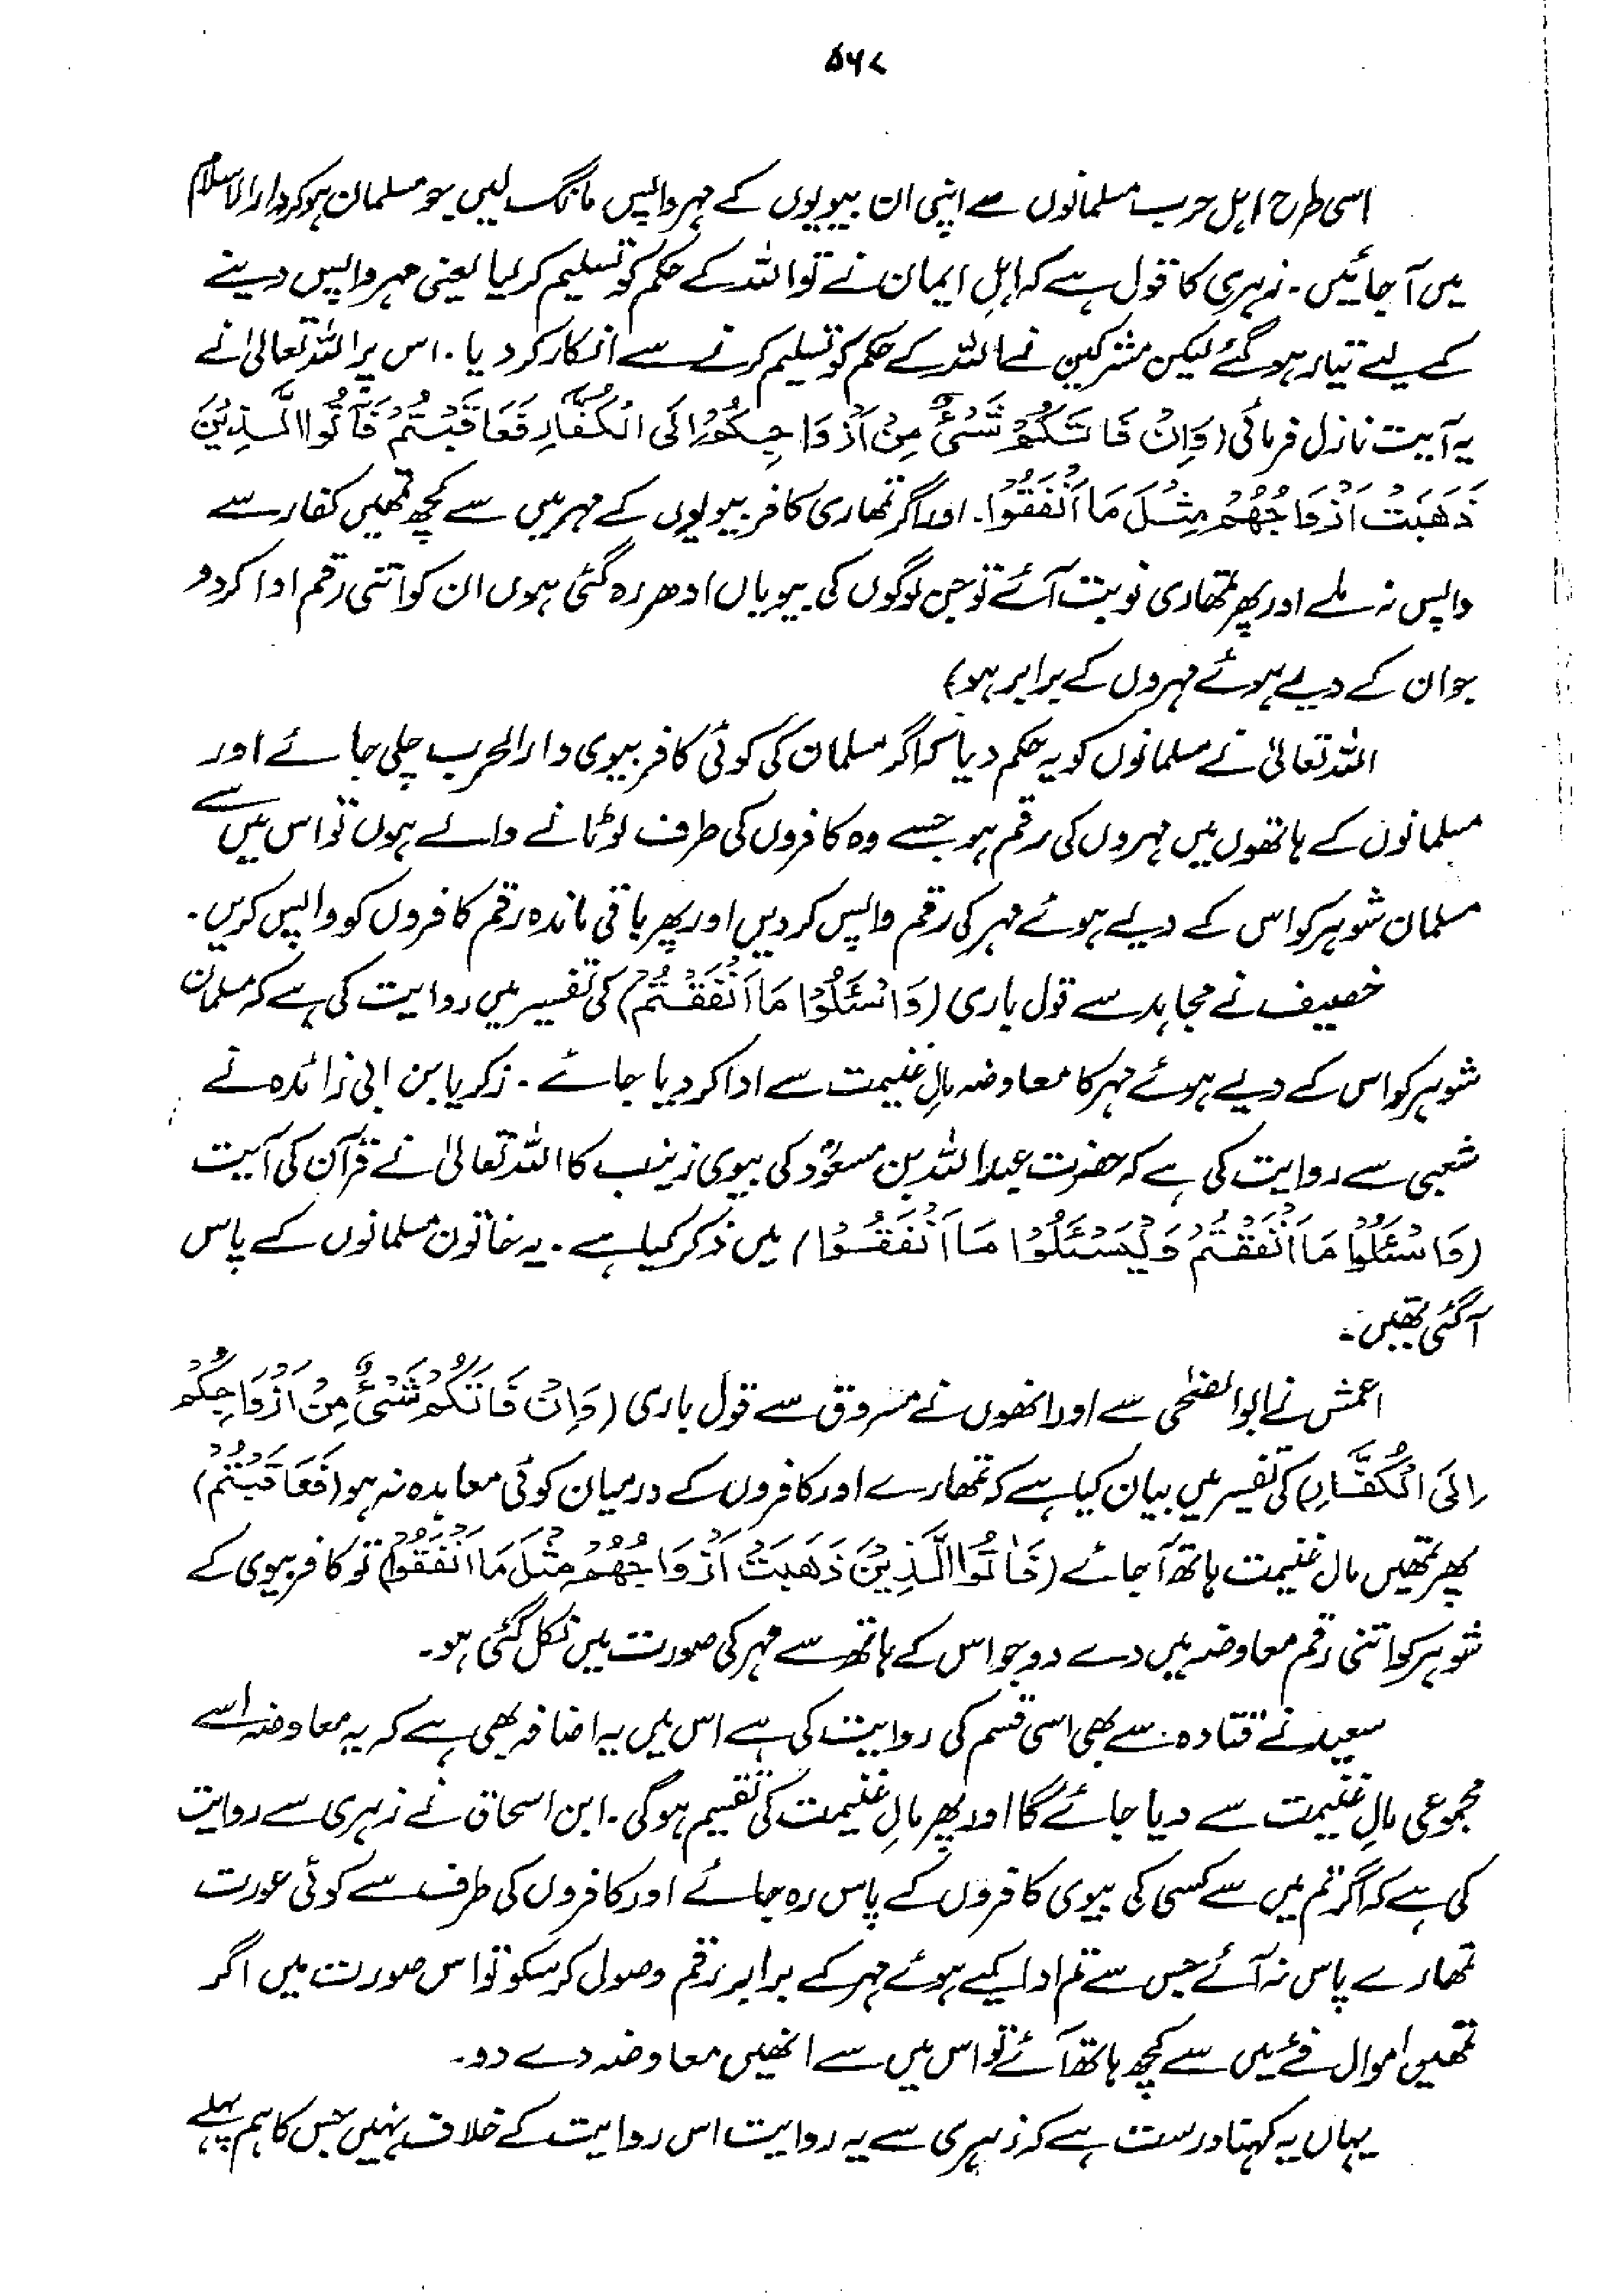 ۵۶۷
اسی طرح اہل حرب مسلمانوں سے اپنی ان بیویوں کے مہر واپس مانگ لیں جو مسلمان ہوکر دارالاسلام
میں آ جائیں۔ زہری کا قول ہے کہ اہلِ ایمان نے تو اللہ کے حکم کو تسلیم کر لیا یعنی مہر واپس دینے
کے لیے تیار ہو گئے لیکن مشرکین نے اللہ کے حکم کو تسلیم کرنے سے انکار کر دیا۔ اس پر اللہ تعالیٰ نے
یہ آیت نازل فرمائی (وَاِنْ فَاتَكُمْ شَیْءٌ مِنْ اَزْوَاجِكُمْ اِلَی الْكُفَّارِ فَعَاقَبْتُمْ فَاٰتُوا الَّذِیْنَ
ذَهَبَتْ اَزْوَاجُهُمْ مِثْلَ مَا اَنْفَقُوْا۔ اور اگر تمھاری کافر بیویوں کے مہر میں سے کچھ تمھیں کفار سے
واپس نہ ملے اور پھر تمھاری نوبت آئے تو جن لوگوں کی بیویاں ادھر رہ گئی ہوں ان کو اتنی رقم ادا کر دو
جو ان کے دیے ہوئے مہروں کے برابر ہو)
اللہ تعالیٰ نے مسلمانوں کو یہ حکم دیا کہ اگر مسلمان کی کوئی کافر بیوی دارالحرب چلی جائے اور
مسلمانوں کے ہاتھوں میں مہروں کی رقم ہو جسے وہ کافروں کی طرف لوٹانے والے ہوں تو اس میں سے
مسلمان شوہر کو اس کے دیے ہوئے مہر کی رقم واپس کر دیں اور پھر باقی ماندہ رقم کافروں کو واپس کریں۔
خصیف نے مجاہد سے قول باری (وَاسْئَلُوْا مَا اَنْفَقْتُمْ) کی تفسیر میں روایت کی ہے کہ مسلمان
شوہر کو اس کے دیے ہوئے مہر کا معاوضہ مالِ غنیمت سے ادا کر دیا جائے۔ زکریا بن ابی زائدہ نے
شعبی سے روایت کی ہے کہ حضرت عبداللہ بن مسعودؓ کی بیوی زینب کا اللہ تعالیٰ نے قرآن کی آیت
(وَاسْئَلُوْا مَا اَنْفَقْتُمْ وَلْیَسْئَلُوْا مَا اَنْفَقُوْا) میں ذکر کیا ہے۔ یہ خاتون مسلمانوں کے پاس
آگئی تھیں۔
اعمش نے ابوالضحیٰ سے اور انھوں نے مسروق سے قول باری (وَاِنْ فَاتَكُمْ شَیْءٌ مِنْ اَزْوَاجِكُمْ
اِلَی الْكُفَّارِ) کی تفسیر میں بیان کیا ہے کہ تمھارے اور کافروں کے درمیان کوئی معاہدہ نہ ہو (فَعَاقَبْتُمْ)
پھر تمھیں مال غنیمت ہاتھ آ جائے (فَاٰتُوا الَّذِیْنَ ذَهَبَتْ اَزْوَاجُهُمْ مِثْلَ مَا اَنْفَقُوْا) تو کافر بیوی کے
شوہر کو اتنی رقم معاوضہ میں دے دو جو اس کے ہاتھ سے مہر کی صورت میں نکل گئی ہو۔
سعید نے قتادہ سے بھی اسی قسم کی روایت کی ہے اس میں یہ اضافہ بھی ہے کہ یہ معاوضہ اسے
مجموعی مالِ غنیمت سے دیا جائے گا اور پھر مالِ غنیمت کی تقسیم ہوگی۔ ابن اسحاق نے زہری سے روایت
کی ہے کہ اگر تم میں سے کسی کی بیوی کافروں کے پاس رہ جائے اور کافروں کی طرف سے کوئی عورت
تمھارے پاس نہ آئے جس سے تم ادا کیے ہوئے مہر کے برابر رقم وصول کر سکو تو اس صورت میں اگر
تمھیں اموال فئے میں سے کچھ ہاتھ آئے تو اس میں سے انھیں معاوضہ دے دو۔
یہاں یہ کہنا درست ہے کہ زہری سے یہ روایت اس روایت کے خلاف نہیں جس کا ہم پہلے